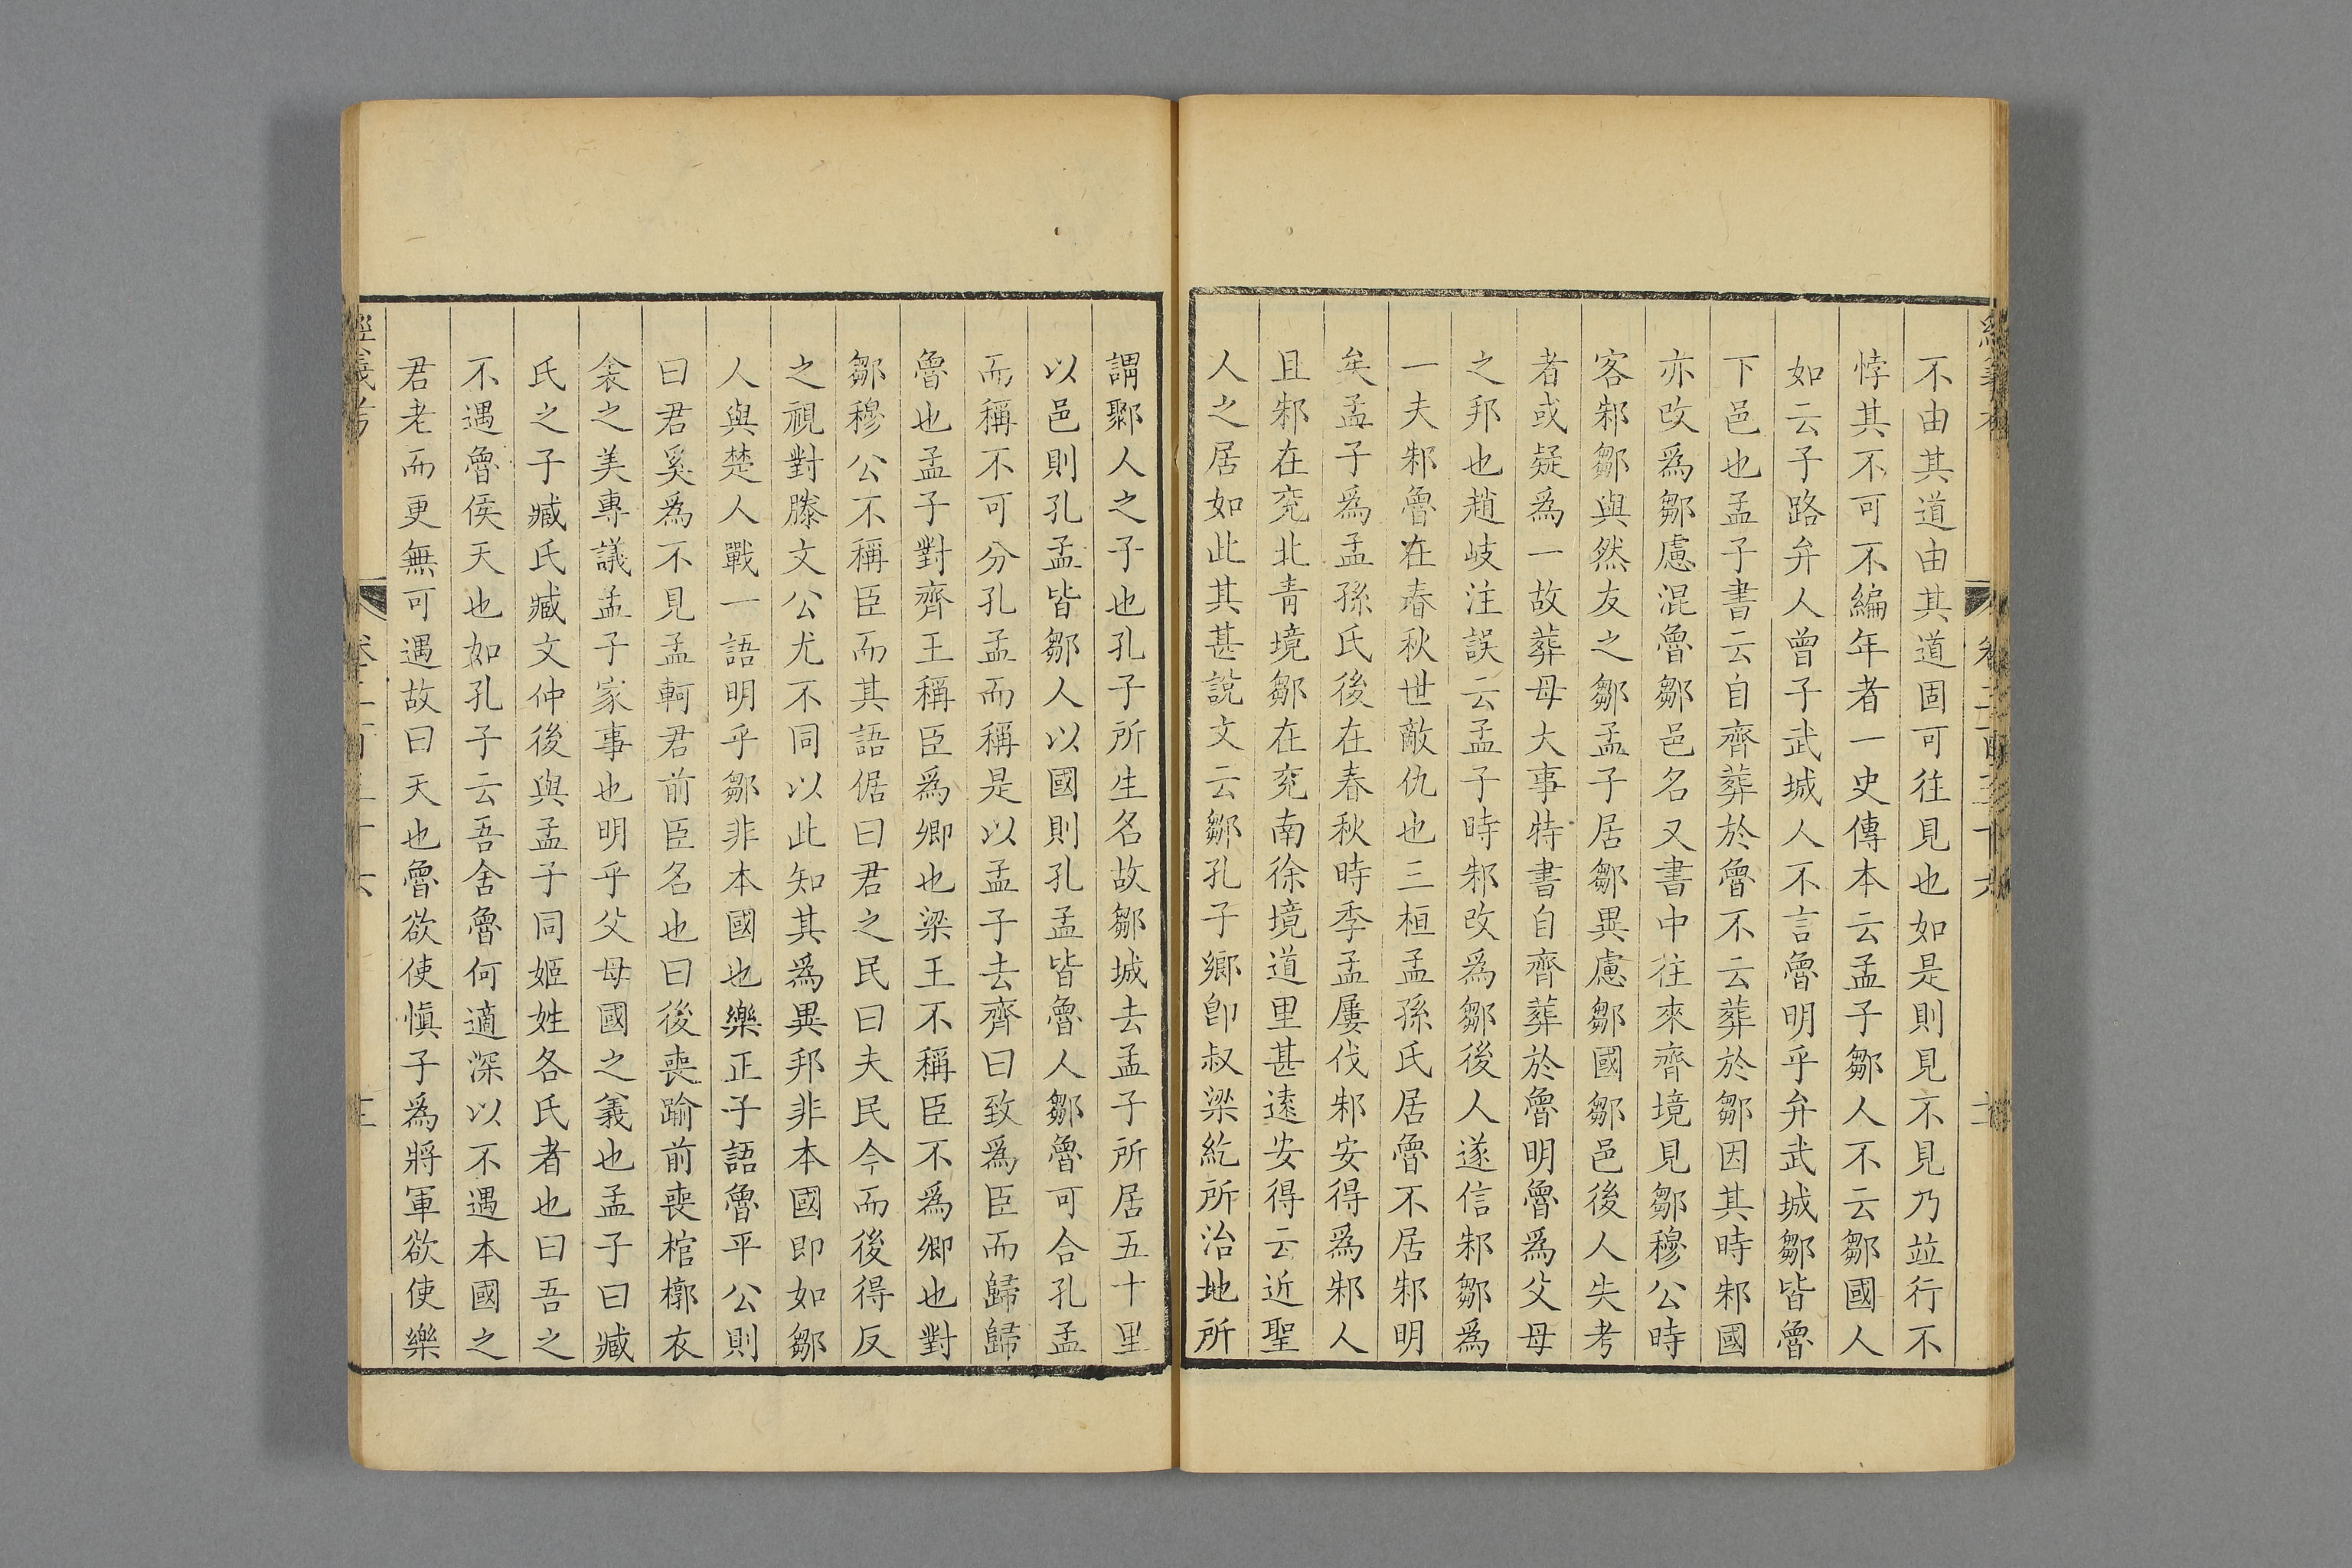 不由其道由其道固可往見也如是則見不見乃並行不
悖其不可不編年者一史傳本云孟子鄒人不云鄒國人
如云子路弁人曾子武城人不言魯明乎弁武城鄒皆魯
下邑也孟子書云自齊葬於魯不云葬於鄒因其時邾國
亦改爲鄒慮混魯鄒邑名又書中往來齊境見鄒穆公時
客邾鄒與然友之鄒孟子居鄒異慮鄒國鄒邑後人失考
者或疑爲一故葬母大事特書自齊葬於魯明魯爲父母
之邦也趙岐注誤云孟子時邾改爲鄒後人遂信邾鄒爲
一夫邾魯在春秋世敵仇也三桓孟孫氏居魯不居邾明
矣孟子爲孟孫氏後在春秋時季孟屢伐邾安得爲邾人
且邾在兖北青境鄒在兖南徐境道里甚遠安得云近聖
人之居如此其甚說文云鄒孔子鄉卽叔梁紇所治地所
謂鄹人之子也孔子所生名故鄒城去孟子所居五十里
以邑則孔孟皆鄒人以國則孔孟皆魯人鄒魯可合孔孟
而稱不可分孔孟而稱是以孟子去齊曰致爲臣而歸歸
魯也孟子對齊王稱臣爲卿也梁王不稱臣不爲卿也對
鄒穆公不稱臣而其語倨曰君之民曰夫民今而後得反
之視對滕文公尤不同以此知其爲異邦非本國即如鄒
人與楚人戰一語明乎鄒非本國也樂正子語魯平公則
曰君奚爲不見孟軻君前臣名也曰後喪踰前喪棺槨衣
衾之美專議孟子家事也明乎父母國之義也孟子曰臧
氏之子臧氏臧文仲後與孟子同姬姓各氏者也曰吾之
不遇魯侯天也如孔子云吾舍魯何適深以不遇本國之
君老而更無可遇故曰天也魯欲使愼子爲將軍欲使樂
經義考